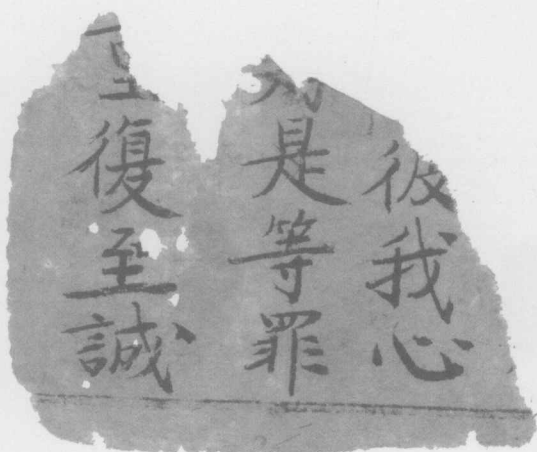 彼我心
是等罪
復至誠